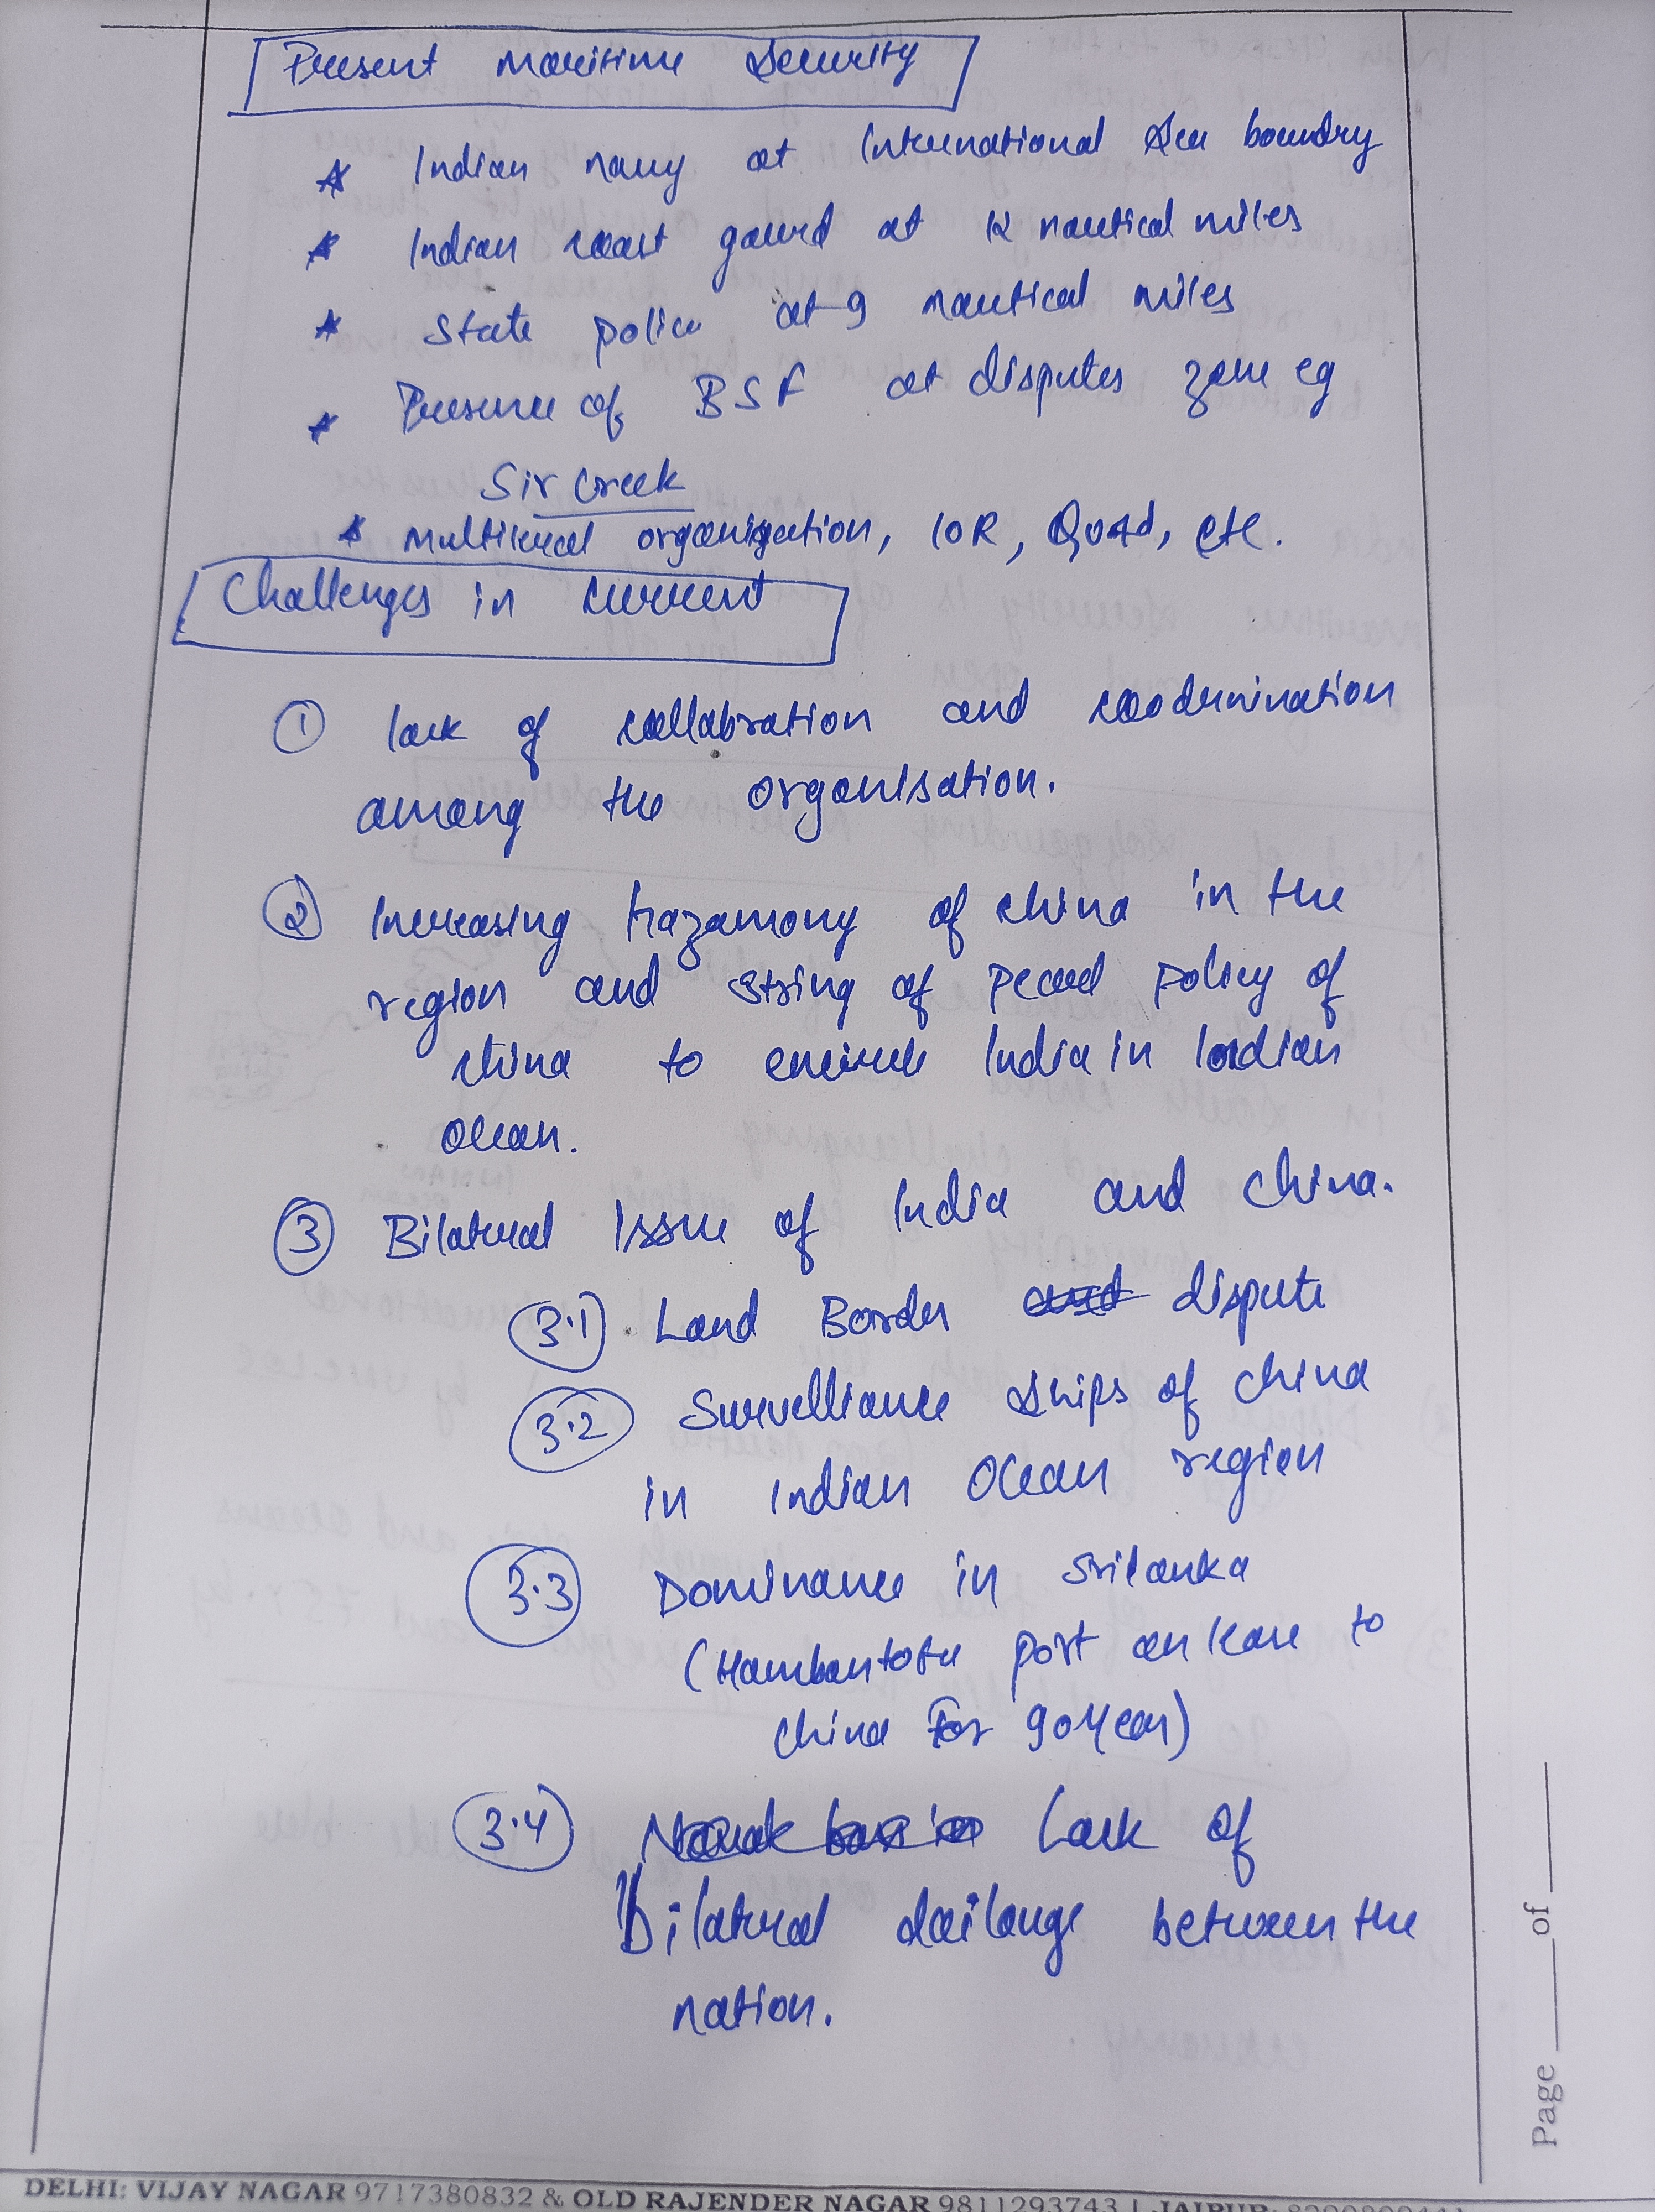 Present Maritime Security
* Indian navy at International Sea boundry
* Indian coast gaurd at 12 nautical miles
* State police at 9 nautical miles
* Presence of BSF at disputes zone eg
Sir Creek
* Multilateral organization, IOR, Quad, etc.
Challenges in current
① lack of collabration and coodernination
among the organisation.
② Increasing hazamony of china in the
region and string of pearl policy of
china to encircle India in Indian
Ocean.
③ Bilateral Issue of India and china.
3.1 Land Border and dispute
3.2 Survelliance ships of china
in Indian Ocean region
3.3 Dominance in Srilanka
(Hambantota port on lease to
china for 90 year)
3.4 Lack of
Bilateral dailouge between the
nation.
Page ____ of ____
DELHI: VIJAY NAGAR 9717380832 & OLD RAJENDER NAGAR 9811293743 | JAIPUR: